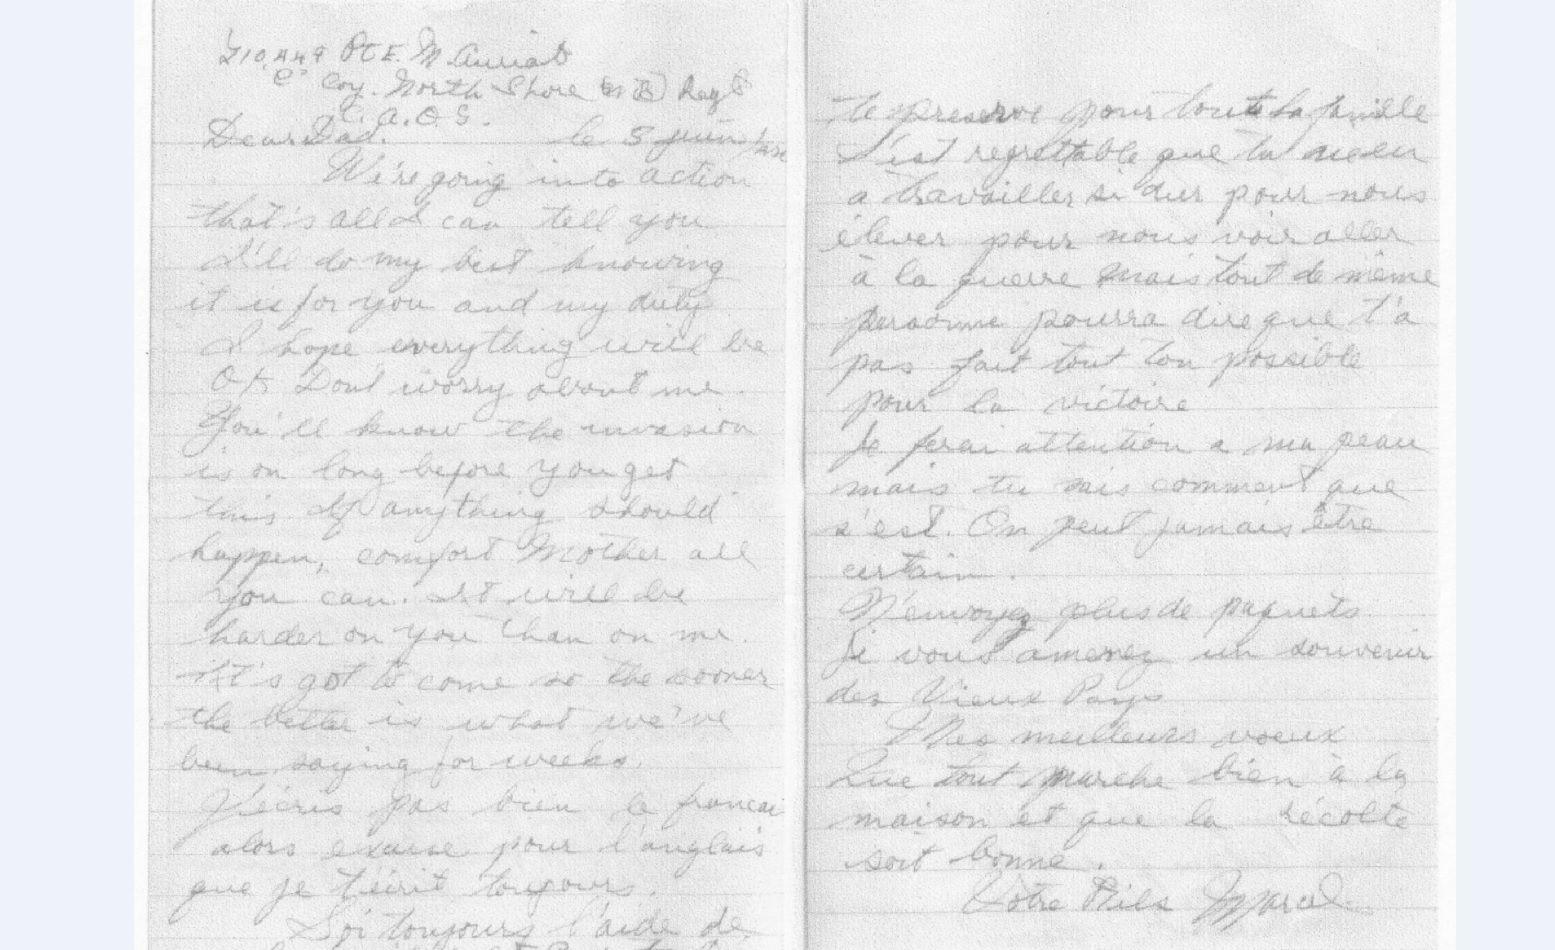 Pte. M
"C" Coy. North Shore (N.B) Regt
C.A.O.S.
Dear Dad. le 5 juin
We're going into action
that's all I can tell you
I'll do my best knowing
it is for you and my duty
I hope everything will be
O.K. Dont worry about me.
You'll know the invasion
is on long before you get
this. If anything should
happen, comfort Mother all
you can. It will be
harder on you than on me.
It's got to come so the sooner
the better is what we've
been saying for weeks.
J'écris pas bien le francai
alors excuse pour l'anglais
que je t'écrit toujours.
Soi toujours l'aide de
te preserve pour toute la famille
S'est regrettable que tu aies eu
a travailler si dur pour nous
élever pour nous voir aller
à la guerre mais tout de même
personne pourra dire que t'a
pas fait tout ton possible
pour la victoire
Je ferai attention a ma peau
mais tu sais comment que
s'est. On peut jamais être
certain.
N'envoyez plus de paquets.
Si vous amenez un souvenir
des Vieux Pays
Mes meilleurs voeux
Que tout marche bien à la
maison et que la récolte
soit bonne.
Votre Fils Marcel.